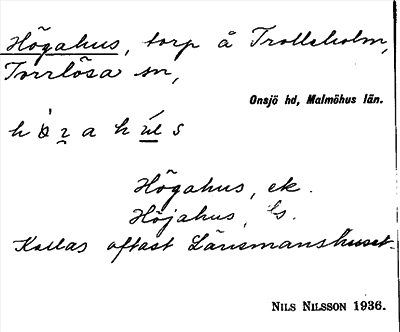 Högahus, torp å Trolleholm,
Torrlösa sn,
Onsjö hd, Malmöhus län.
Högahus, ek.
Höjahus,
Kallas oftast Länsmanshuset.
NILS NILSSON 1936.